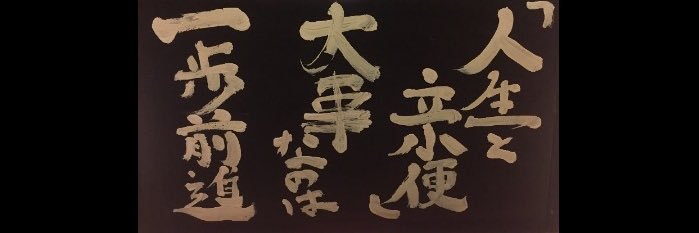 「人生と
立小便」
大事なのは
一歩前進